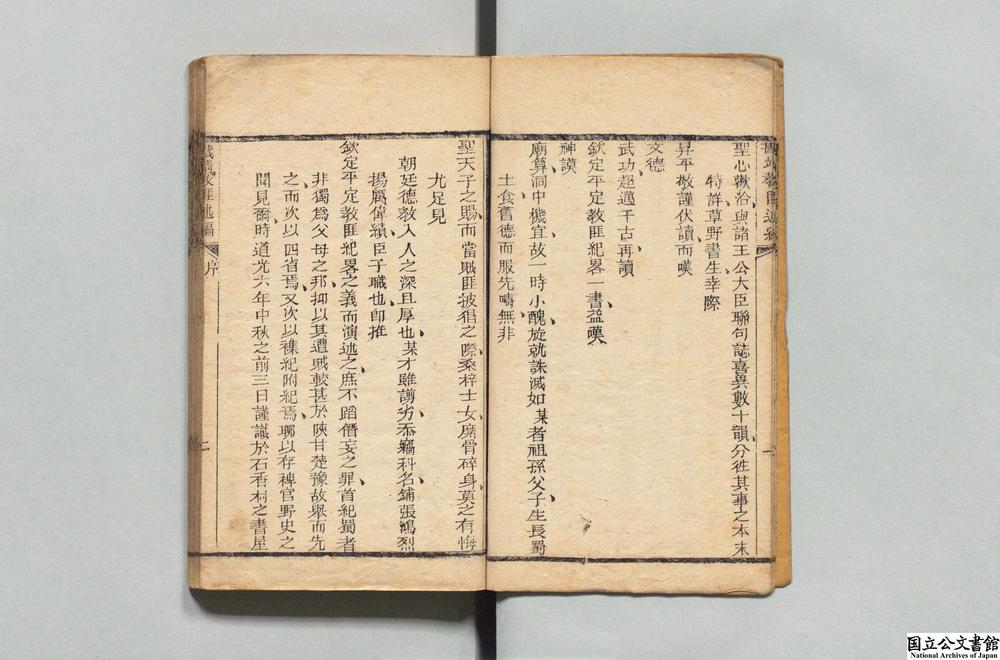 聖心歉洽與諸王公大臣聯句誌喜異數十韻分徃其事之本末
特詳草野書生幸際
昇平敬謹伏讀而嘆
文德
武功超邁千古再讀
欽定平定教匪紀畧一書益嘆
神謨
廟算洞中機宜故一時小醜旋就誅滅如某者祖孫父子生長蜀
土食舊德而服先疇無非
聖天子之賜而當賊匪披猖之際桑梓士女糜骨碎身莫之有悔
尤足見
朝廷德教入人之深且厚也某才雖譾劣忝竊科名鋪張鴻烈
揚厲偉績臣子職也卽推
欽定平定教匪紀畧之義而演述之庶不蹈僭妄之罪首紀蜀者
非獨爲父母之邦抑以其遭賊較甚於陝甘楚豫故舉而先
之而次以四省焉又次以襍紀附紀焉聊以存稗官野史之
聞見爾時道光六年中秋之前三日謹識於石香村之書屋
戡靖教匪述編
序
二
国立公文書館
National Archives of Japan